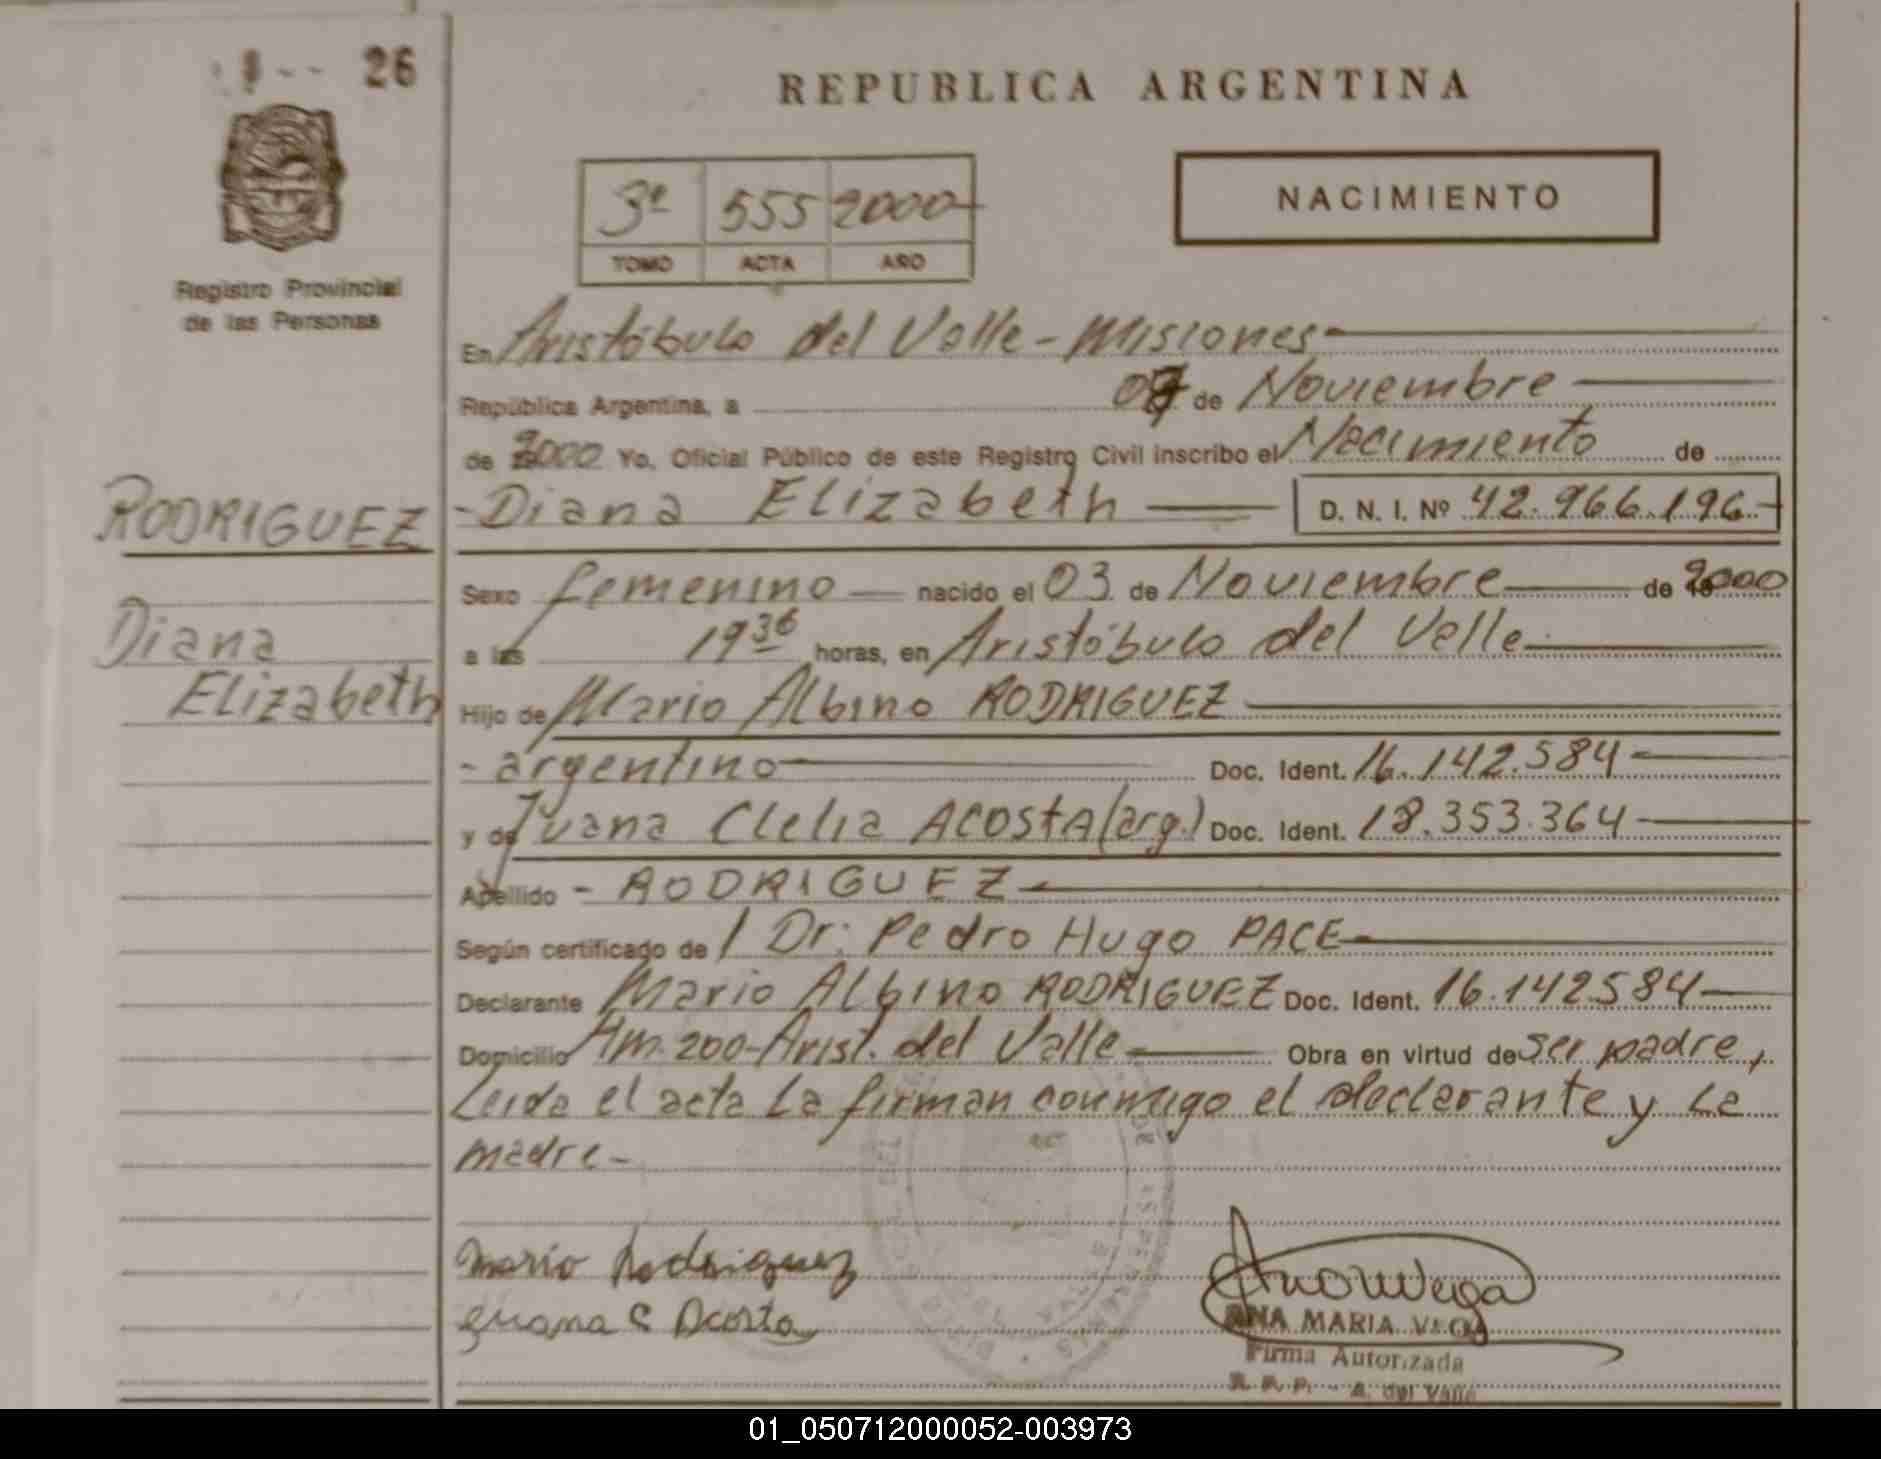 26
REPUBLICA ARGENTINA
NACIMIENTO
3º 555 2000
TOMO ACTA AÑO
Registro Provincial
de las Personas
En Aristóbulo del Valle - Misiones
República Argentina, a 07 de Noviembre
de 2000 Yo, Oficial Público de este Registro Civil inscribo el Nacimiento de
RODRIGUEZ
- Diana Elizabeth D. N. I. Nº 42.966.196.-
Diana
Elizabeth
Sexo femenino nacido el 03 de Noviembre de 2000
a las 19 36 horas, en Aristóbulo del Valle
Hijo de Mario Albino RODRIGUEZ
- argentino Doc. Ident. 16.142.584
y de Juana Clelia ACOSTA (arg.) Doc. Ident. 18.353.364
Apellido - RODRIGUEZ
Según certificado de / Dr: Pedro Hugo PACE
Declarante Mario Albino RODRIGUEZ Doc. Ident. 16.142.584
Domicilio Am. 200 - Arist. del Valle Obra en virtud de ser padre,
Leída el acta la firman conmigo el declarante y la
madre -
Mario Rodriguez
Juana C Acosta
ANA MARIA VEGA
Firma Autorizada
R. P. P. - A. del Valle
01_050712000052-003973